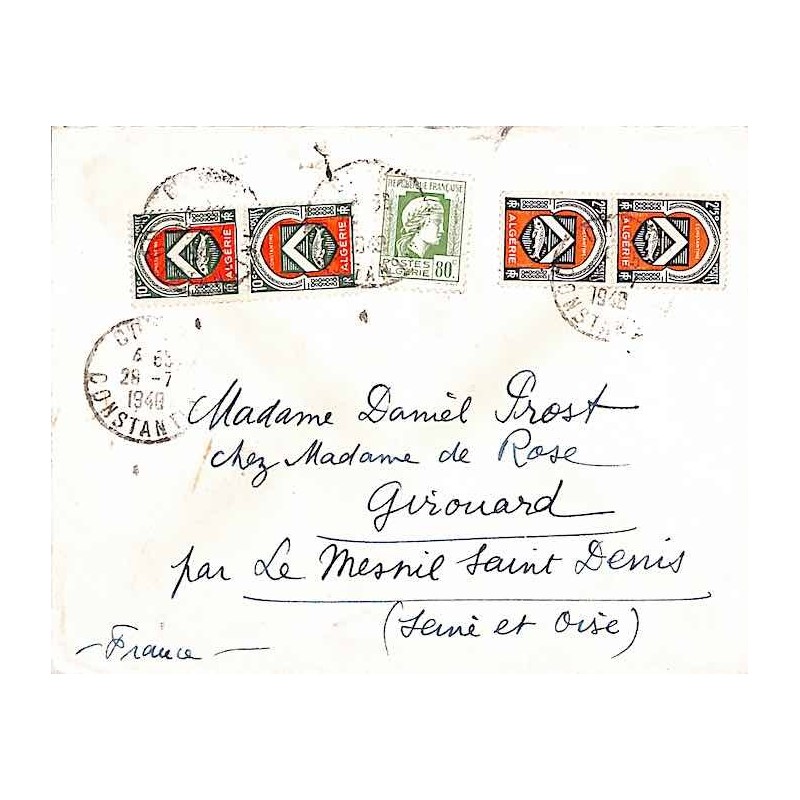 10c
ALGÉRIE
RF
10c
ALGÉRIE
RF
RÉPUBLIQUE FRANÇAISE
POSTES
ALGÉRIE
80c
RF
ALGÉRIE
CONSTANTINE
RF
ALGÉRIE
CONSTANTINE
28 -7
1948
1948
Madame Daniel Prost
chez Madame de Rose
Girouard
par Le Mesnil Saint Denis
(Seine et Oise)
- France -